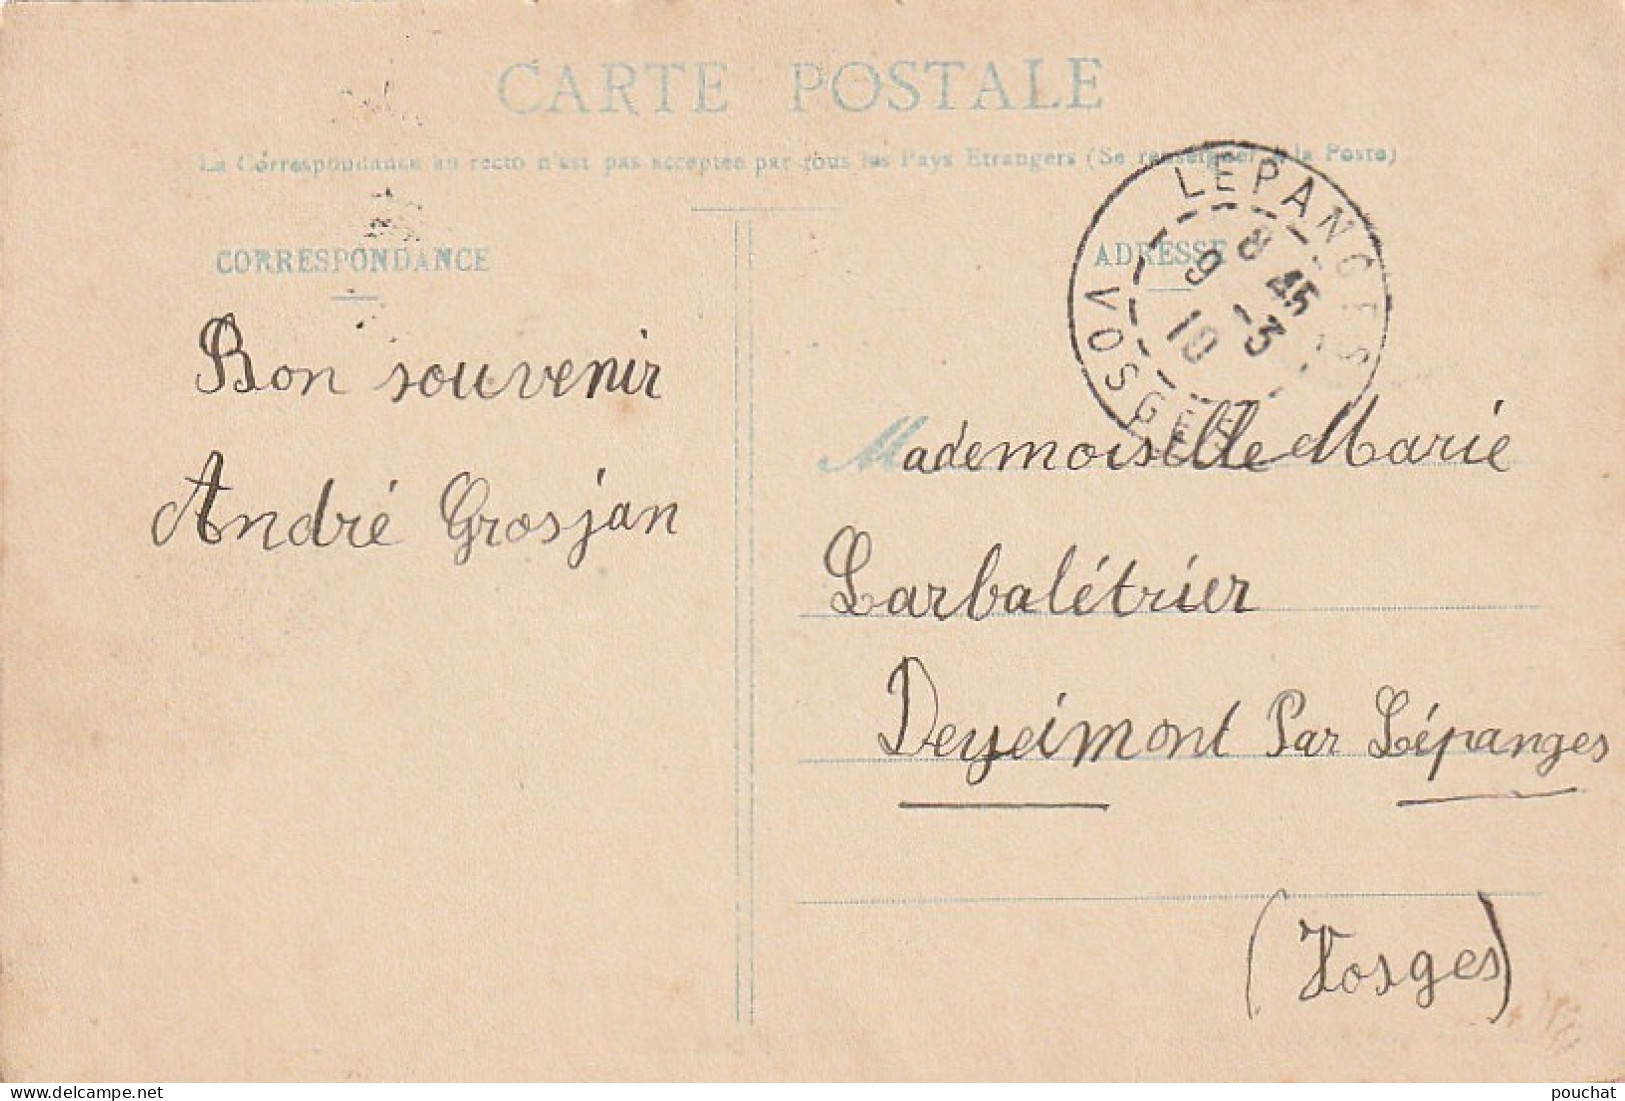 CARTE POSTALE
La Correspondance au recto n'est pas acceptée par tous les Pays Etrangers (Se renseigner à la Poste)
CORRESPONDANCE
ADRESSE
LEPANGES
8 45
9 -3
10
VOSGES
Bon souvenir
André Grosjan
Mademoiselle Marie
Larbalétrier
Deyeimont Par Lépanges
(Vosges)
www.delcampe.net
pouchat